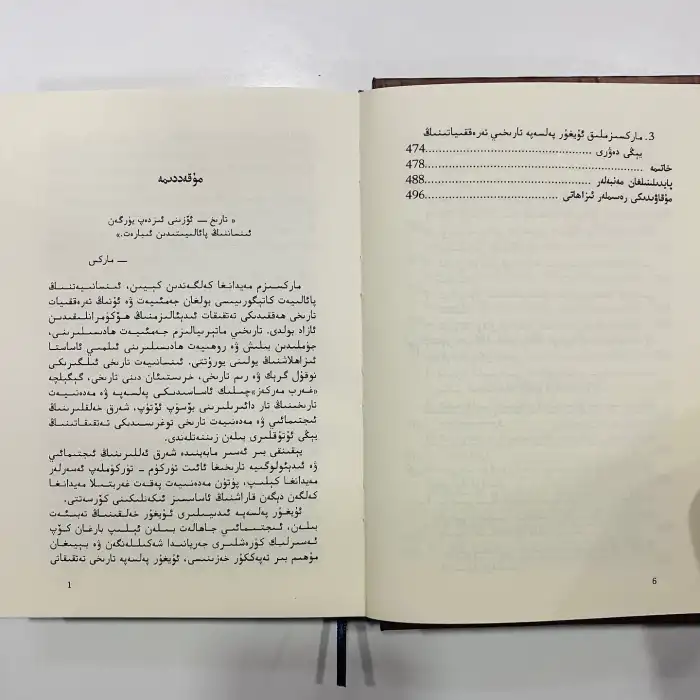 3. ماركسىزملىق ئۇيغۇر پەلسەپە تارىخىي تەرەققىياتىنىڭ
يېڭى دەۋرى ........................................ 474
خاتىمە ........................................ 478
پايدىلىنىلغان مەنبەلەر ........................................ 488
مۇقاۋىدىكى رەسىملەر ئىزاھاتى ........................................ 496
6
مۇقەددىمە
« تارىخ — ئۆزىنى ئىزدەپ يۈرگەن
ئىنساننىڭ پائالىيىتىدىن ئىبارەت.»
— ماركس
ماركسىزم مەيدانغا كەلگەندىن كېيىن، ئىنسانىيەتنىڭ
پائالىيەت كاتېگورىيىسى بولغان جەمئىيەت ۋە ئۇنىڭ تەرەققىيات
تارىخى ھەققىدىكى تەتقىقات ئىدېئالىزمنىڭ ھۆكۈمرانلىقىدىن
ئازاد بولدى. تارىخىي ماتېرىيالىزم جەمئىيەت ھادىسىلىرىنى،
جۈملىدىن بىلىش ۋە روھىيەت ھادىسىلىرىنى ئىلمىي ئاساستا
ئىزاھلاشنىڭ يولىنى يورۇتتى. ئىنسانىيەت تارىخى ئىلگىرىكى
نوقۇل گرېك ۋە رىم تارىخى، خرىستىئان دىنى تارىخى، گېگېلچە
«غەرب مەركەز»چىلىك ئاساسىدىكى پەلسەپە ۋە مەدەنىيەت
تارىخىنىڭ تار دائىرىلىرىنى بۆسۈپ ئۆتۈپ، شەرق خەلقلىرىنىڭ
ئىجتىمائىي مەدەنىيەت تارىخى توغرىسىدىكى تەتقىقاتنىڭ
يېڭى ئۇتۇقلىرى بىلەن زىننەتلەندى.
يېقىنقى بىر ئەسىر مابەينىدە شەرق ئەللىرىنىڭ ئىجتىمائىي
ۋە ئىدېئولوگىيە تارىخىغا ئائىت تۈركۈم - تۈركۈملەپ ئەسەرلەر
مەيدانغا كېلىپ، پۈتۈن مەدەنىيەت پەقەت غەربتىلا مەيدانغا
كەلگەن دېگەن قاراشنىڭ ئاساسسىز ئىكەنلىكىنى كۆرسەتتى.
ئۇيغۇر پەلسەپە ئىدىيىلىرى ئۇيغۇر خەلقىنىڭ تەبىئەت
بىلەن، ئىجتىمائىي جاھالەت بىلەن ئېلىپ بارغان كۆپ
ئەسىرلىك كۈرەشلىرى جەريانىدا شەكىللەنگەن ۋە بېيىغان
مۇھىم بىر تەپەككۇر خەزىنىسى، ئۇيغۇر پەلسەپە تارىخى تەتقىقاتى
1